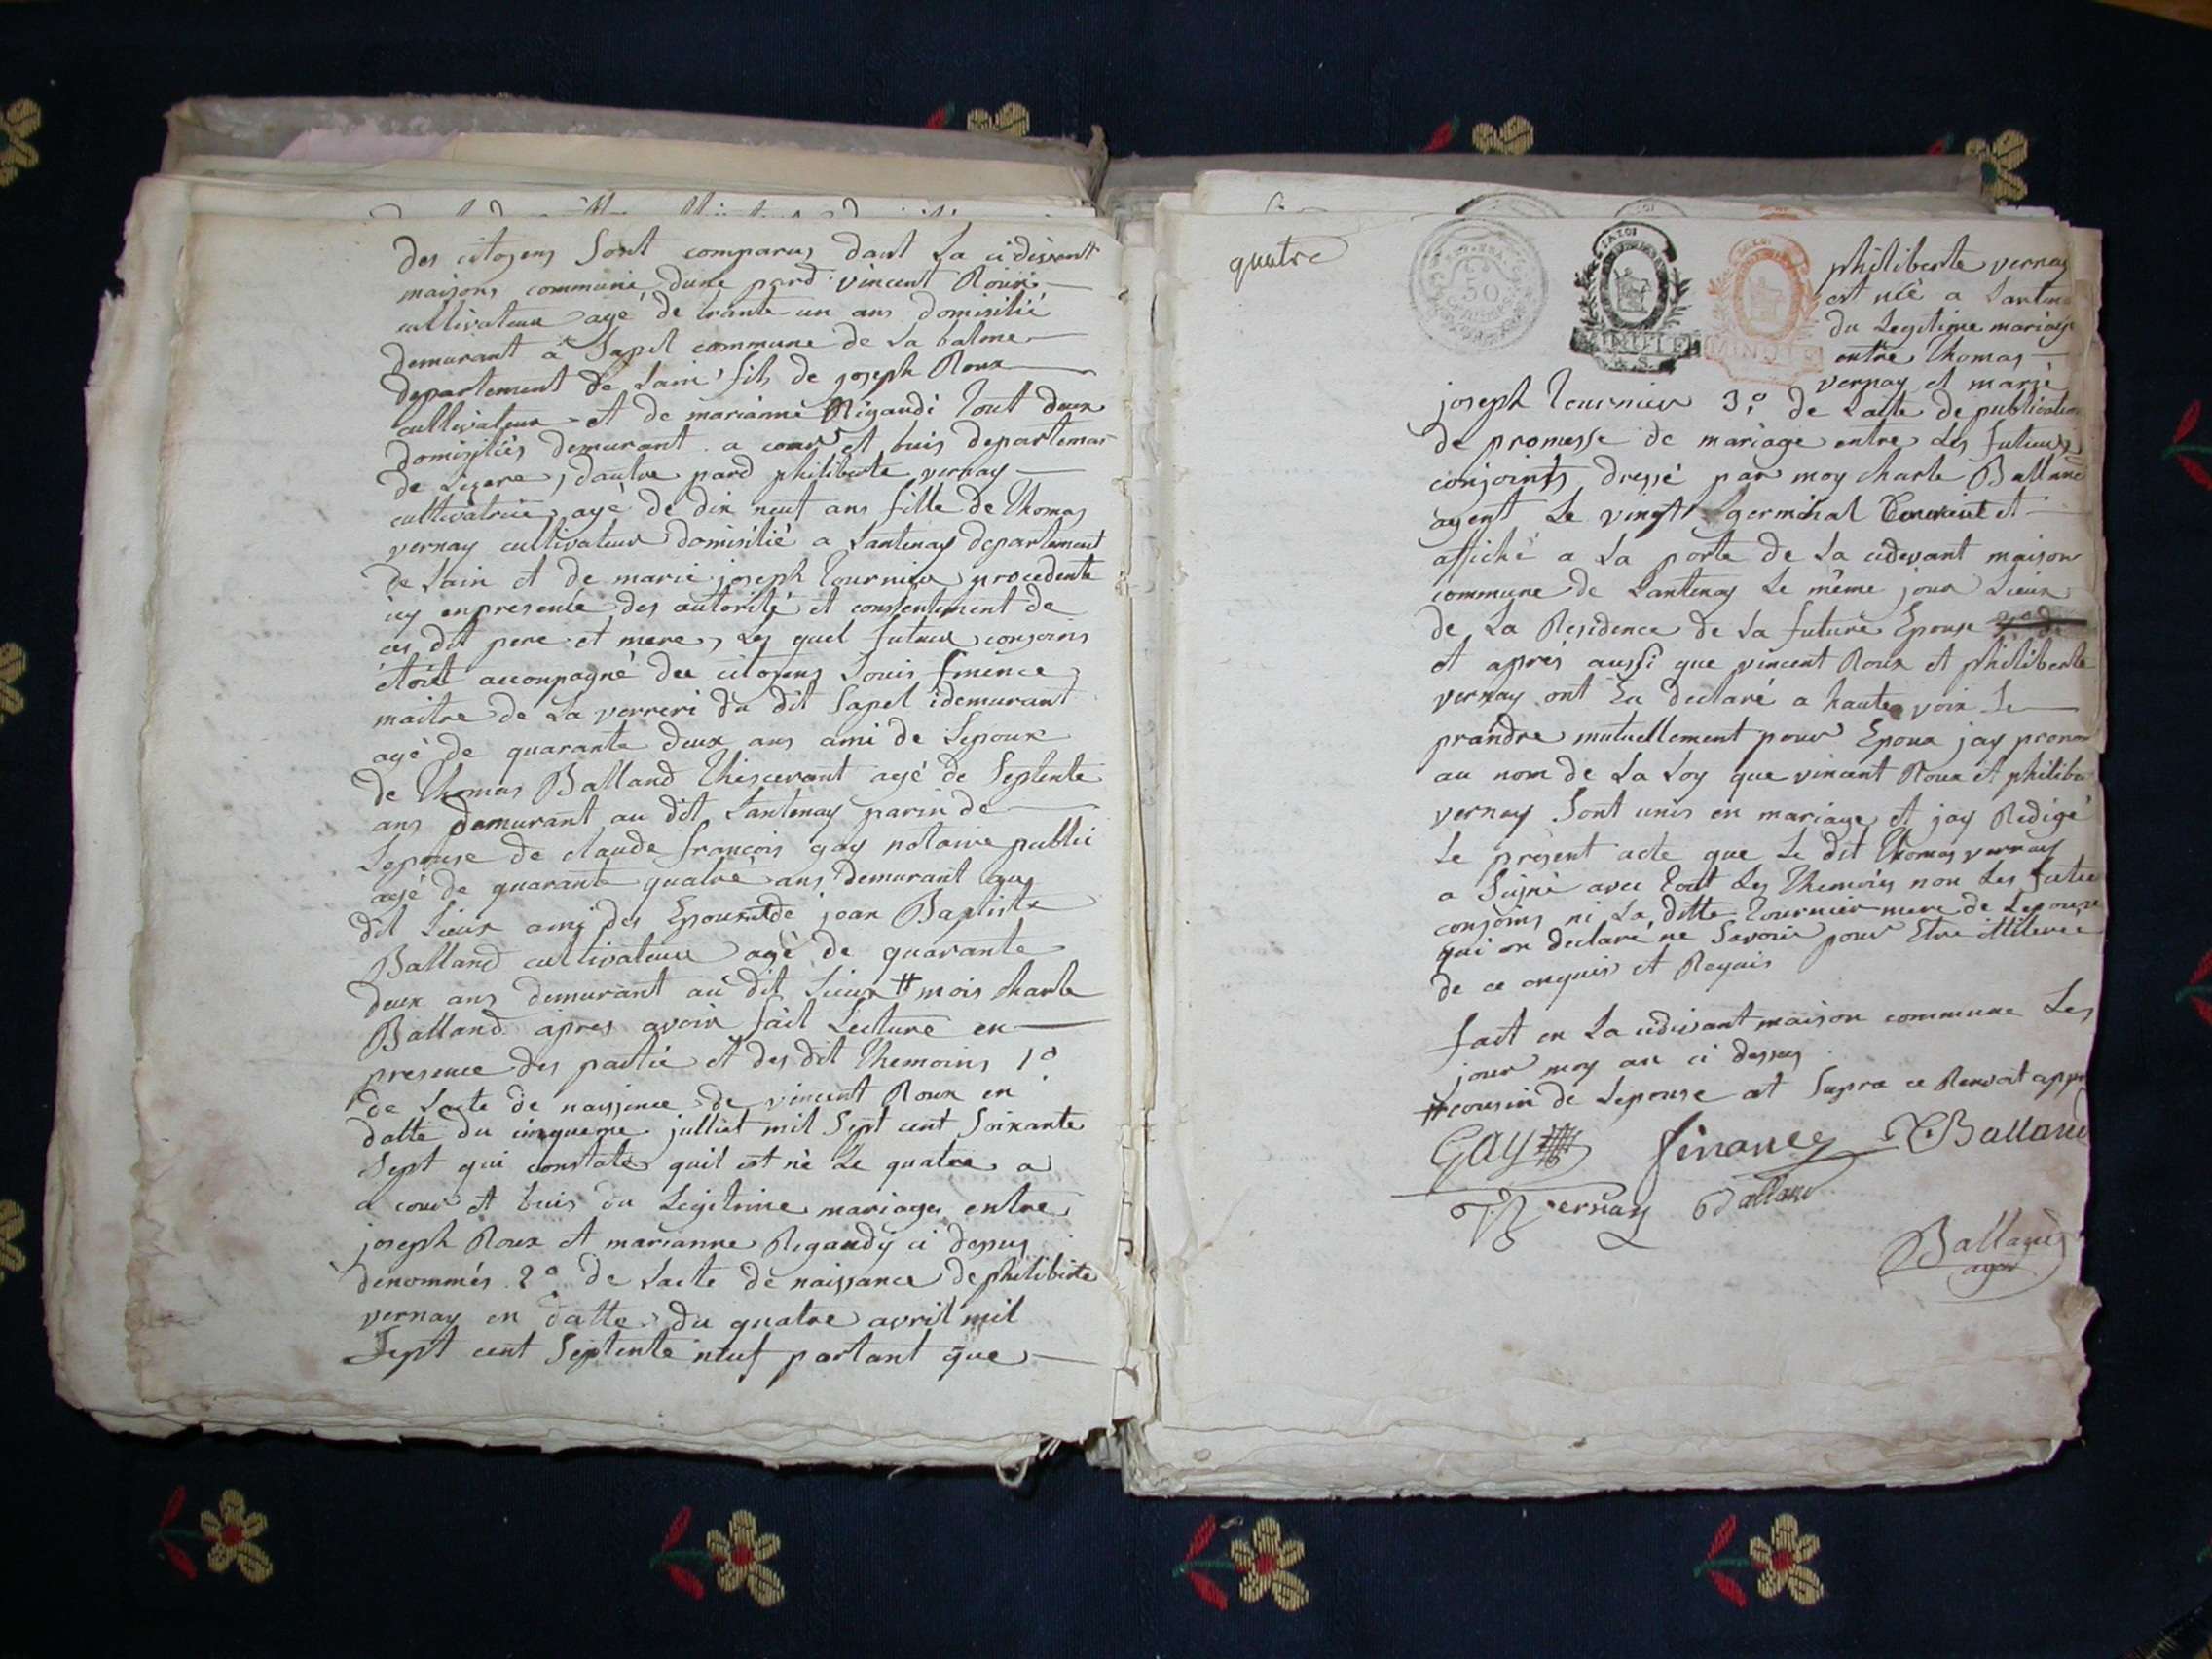 des citoyens Sont comparus dant La cidevant
maisons commune dune pard vincent Roux
cultivateur agé de trante un ans domisilié
demurant a Sapel commune de La balme
departement de Lain fils de joseph Roux
cultivateur et de marianne Rigaudi tout deux
domisiliés demurant a cour et buis departemant
de Lizere, dautre pard philiberte vernay
cultivatrice agé de dix neuf ans fille de Thomas
vernay cultivateur domisilié a Lantenay departement
de Lain et de marie joseph Tournier procedente
icy enpresente des autorité et consentement de
ces dit pere et mere, Les quel futeur conjoins
étoit acconpagné des citoyens Louis finance
maitre de La verreri du dit Sapel idemurant
agé de quarante deux ans ami de Lepoux
de Thomas Balland Thiscerant agé de Septente
ans demurant au dit Lantenay parin de
Lepouse de claude françois gay notaire public
agé de quarante quatre ans demurant au
dit Lieux ami des Epoux et de jean Baptiste
Balland cultivateur agé de quarante
deux ans demurant au dit Lieux # mois charle
Balland apres avoir fait Lecture en
presence des partie et des dit Themoins 1º
de Lacte de naissence de vincent Roux en
datte du cinqueme julliet mil Sept cent Soixante
Sept qui constate quil est né Le quatre a
a cour et buis du Legitime mariage entre
joseph Roux et marianne Rigaudy ci depus
denommés 2º de Lacte de naissance de philiberte
vernay en datte du quatre avril mil
Sept cent Septente neuf partant que
quatre
50
MINUTE
MINUTE
philiberte vernay
est néé a Lantena
du Legitime mariage
entre Thomas
vernay et marie
joseph Tournier 3º de Lacte de publication
de promesse de mariage entre Les futeurs
conjoints dressé par moy charle Balland
agent Le vingt germinal Courant et
affiché a La porte de La cidevant maison
commune de Lantenay Le même jour Lieux
de La Residence de La future Epouse
et aprés aussi que vincent Roux et philiberte
vernay ont Eu declaré a haute voix Se
prandre mutuellement pour Epoux jay prono
au nom de La Loy que vincent Roux et philiber
vernay Sont unis en mariage et jay Redigé
Le présent acte que Le dit Thomas vernay
a Signé avec tout Les Themoins non Les futeu
conjoins ni La ditte Tournier mere de Lepouse
qui on declaré ne Savoir pour Etre illiteree
de ce enquis et Requis
fait en La cidivant maison commune Les
jour moy an ci dessus
# cousin de Lepouse at Supra ce Renvoit appr
GAY finance T. Balland
Vernay Balland
Balland
agent